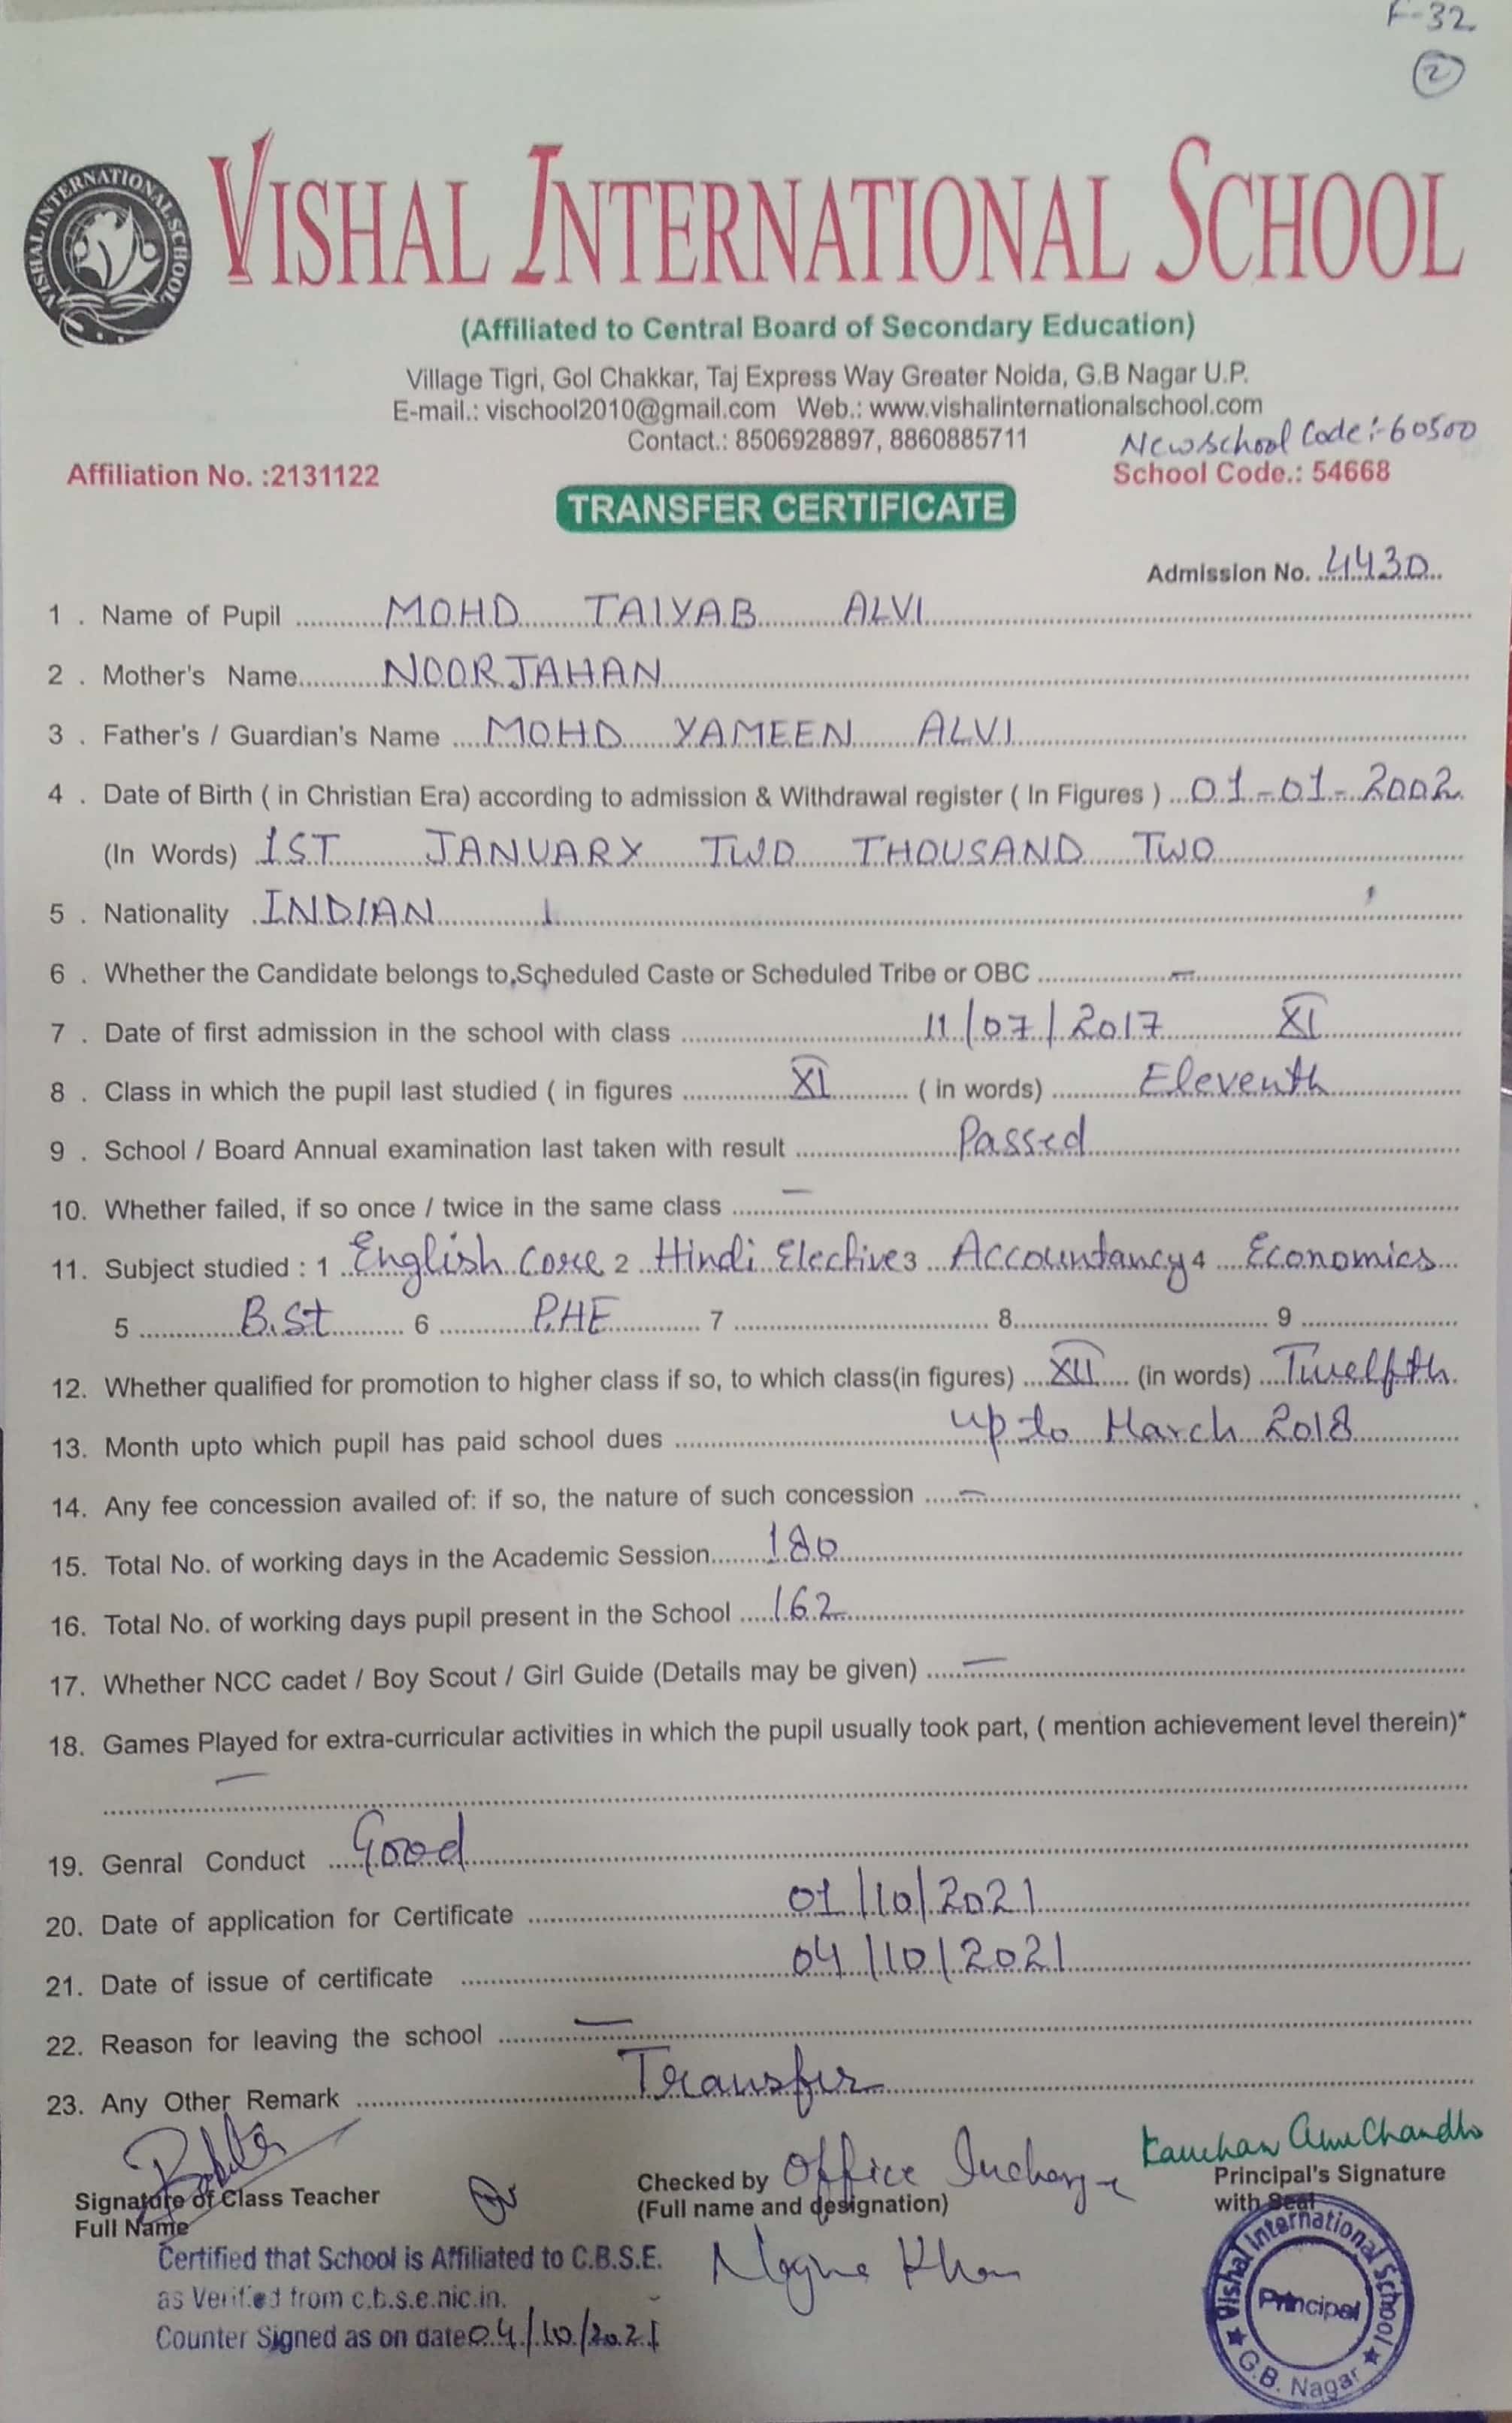 F-32
2
VISHAL INTERNATIONAL SCHOOL
VISHAL INTERNATIONAL SCHOOL
(Affiliated to Central Board of Secondary Education)
Village Tigri, Gol Chakkar, Taj Express Way Greater Noida, G.B Nagar U.P.
E-mail.: vischool2010@gmail.com Web.: www.vishalinternationalschool.com
Contact.: 8506928897, 8860885711
New School Code:-60500
Affiliation No. :2131122 School Code.: 54668
TRANSFER CERTIFICATE
Admission No. 4430
1 . Name of Pupil MOHD TAIYAB ALVI
2 . Mother's Name NOORJAHAN
3 . Father's / Guardian's Name MOHD YAMEEN ALVI
4 . Date of Birth ( in Christian Era) according to admission & Withdrawal register ( In Figures ) 01-01-2002
(In Words) 1ST JANUARY TWO THOUSAND TWO
5 . Nationality INDIAN
6 . Whether the Candidate belongs to,Scheduled Caste or Scheduled Tribe or OBC –
7 . Date of first admission in the school with class 11/07/2017 XI
8 . Class in which the pupil last studied ( in figures XI ( in words) Eleventh
9 . School / Board Annual examination last taken with result Passed
10. Whether failed, if so once / twice in the same class –
11. Subject studied : 1 English Core 2 Hindi Elective 3 Accountancy 4 Economics
5 B.St 6 P.HE 7 8 9
12. Whether qualified for promotion to higher class if so, to which class(in figures) XII (in words) Twelfth
13. Month upto which pupil has paid school dues up to March 2018
14. Any fee concession availed of: if so, the nature of such concession –
15. Total No. of working days in the Academic Session 180
16. Total No. of working days pupil present in the School 162
17. Whether NCC cadet / Boy Scout / Girl Guide (Details may be given) –
18. Games Played for extra-curricular activities in which the pupil usually took part, ( mention achievement level therein)*
–
19. Genral Conduct Good
20. Date of application for Certificate 01/10/2021
21. Date of issue of certificate 04/10/2021
22. Reason for leaving the school –
23. Any Other Remark Transfer
Signature of Class Teacher
Full Name
Checked by Office Incharge
(Full name and designation)
Khan
Kanchan
Principal's Signature
with Seal
Certified that School is Affiliated to C.B.S.E.
as Verified from c.b.s.e.nic.in.
Counter Signed as on date 04/10/2021
Vishal International School
Principal
G.B. Nagar